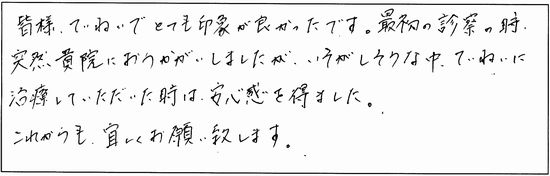 皆様、ていねいでとても印象が良かったです。最初の診察の時、
突然貴院におうかがいしましたが、いそがしそうな中、ていねいに
治療していただいた時は、安心感を得ました。
これからも、宜しくお願い致します。